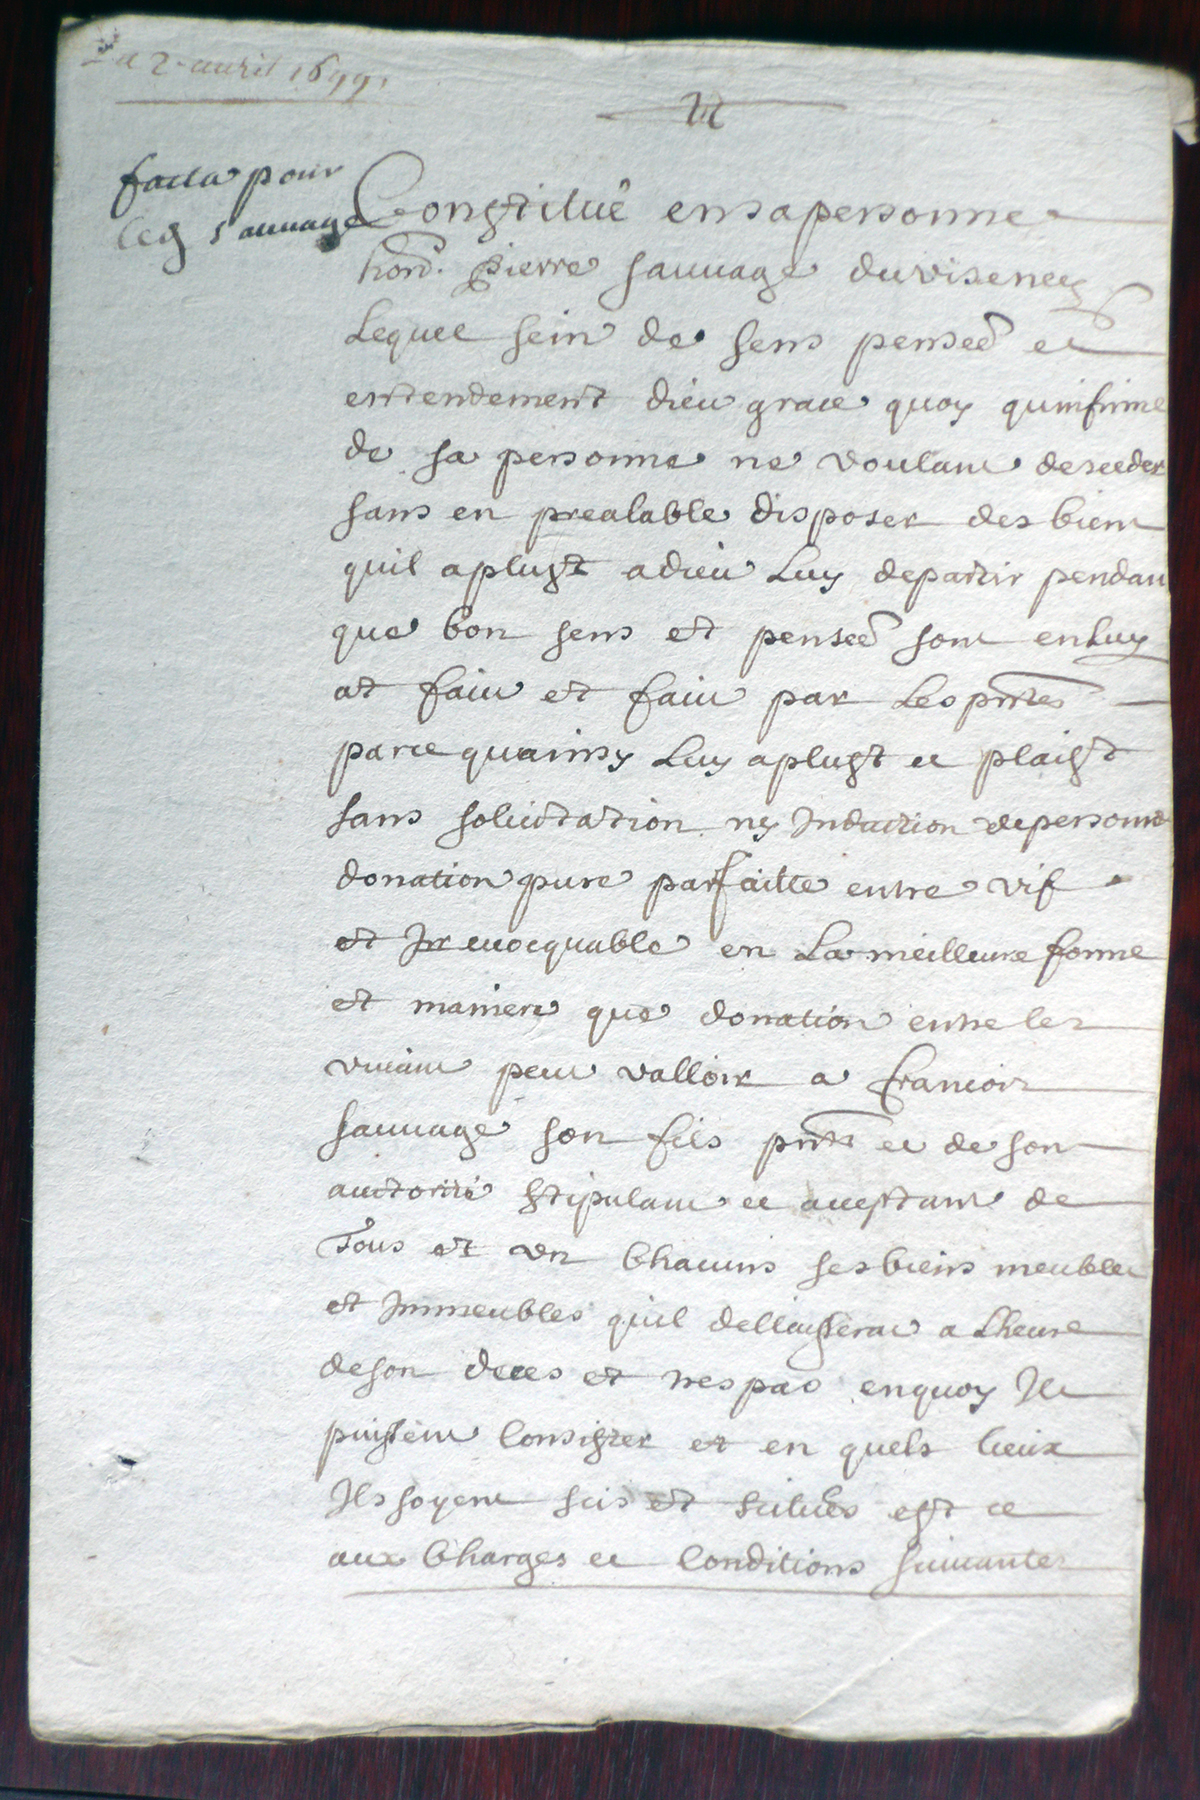 2 auril 1699
facta pour
led sauuage
Constitué en sa personne
hon. Pierre sauuage du viseney
Lequel sein de sens penseé et
entendement dieu grace quoy quinfirme
de sa personne ne voulant deceder
sans en prealable disposer des biens
quil a plust a dieu Luy departir pendant
que bon sens et penseé sont en Luy
at fait et fait par Les pntes
parce quainsy Luy a plust et plaist
sans solicitation ny Induction de personne
donation pure parfaitte entre vif
et Irreuocquable en La meilleure forme
et maniere que donation entre les
viuans peut valloir a francois
sauuage son fils pnt et de son
auctorité stipulant et acceptant de
Tous et vn Chacuns ses biens meubles
et Immeubles quil dellaisserat a Lheure
de son deces et trespas en quoy Ils
puissent Consister et en quels lieux
Ils soyent scis et scitués est ce
aux Charges et Conditions suiuantes